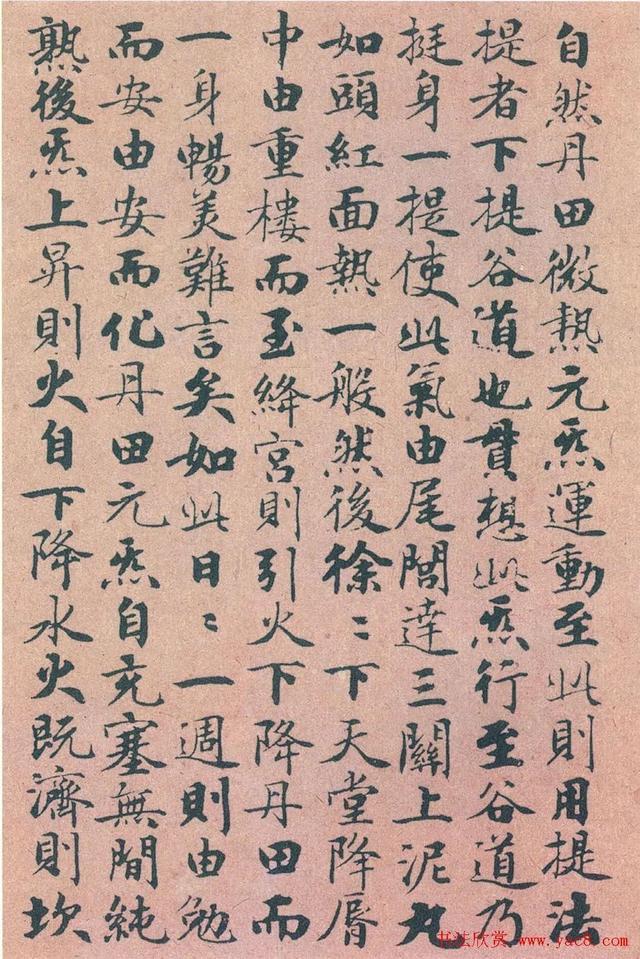 自然丹田微熱元炁運動至此則用提法
提者下提谷道也貫想此炁行至谷道乃
挺身一提使此氣由尾閭達三關上泥丸
如頭紅面熱一般然後徐〻下天堂降脣
中由重樓而至絳宮則引火下降丹田而
一身暢美難言矣如此日〻一週則由勉
而安由安而化丹田元炁自充塞無間純
熟後炁上昇則火自下降水火既濟則坎
书法欣赏 www.yac8.com